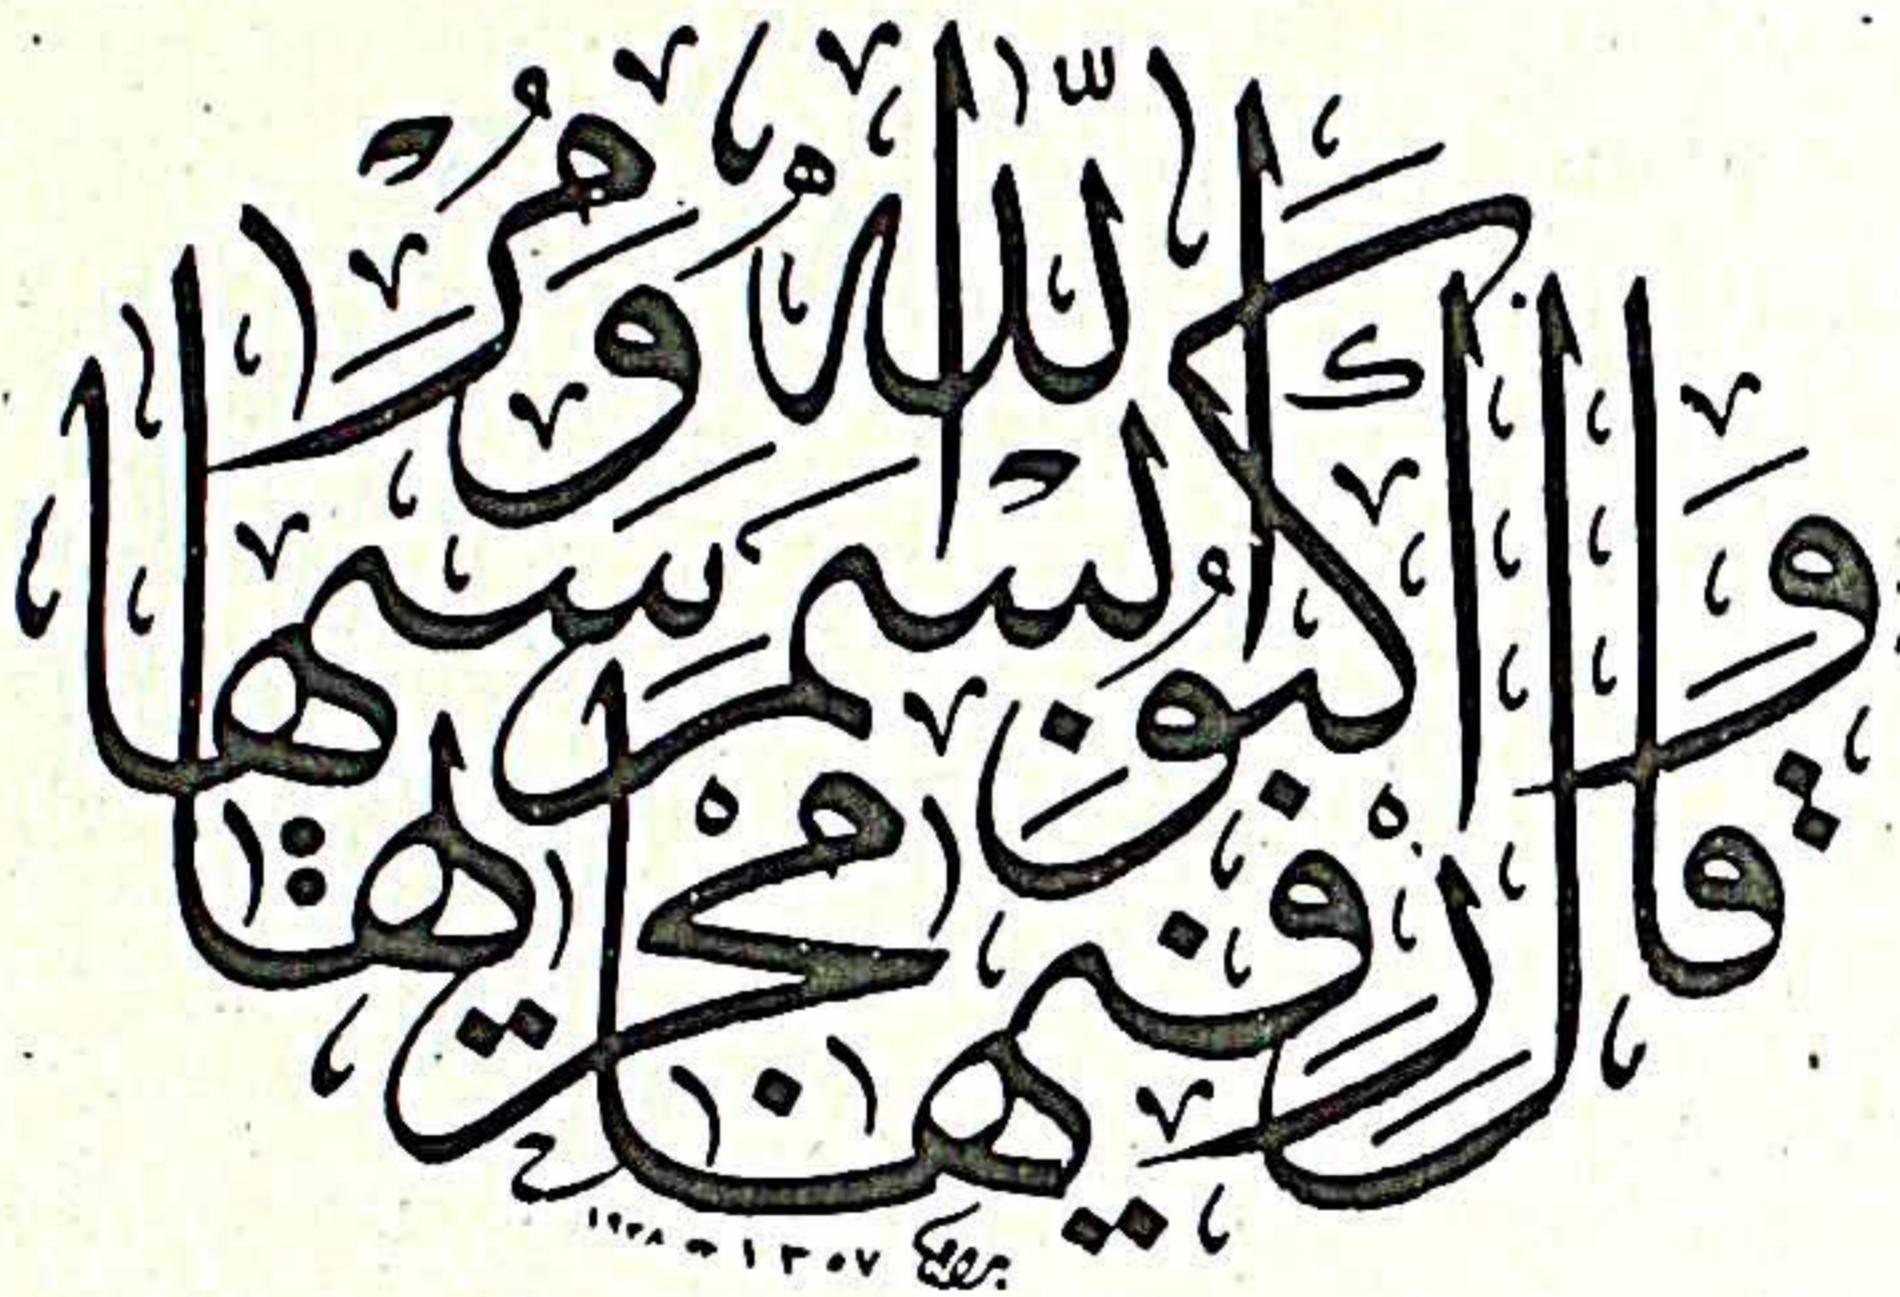 وَقَالَ ارْكَبُوا فِيهَا بِسْمِ اللَّهِ مَجْرَاهَا وَمُرْسَاهَا
١٣٥٧ هـ ١٩٣٨